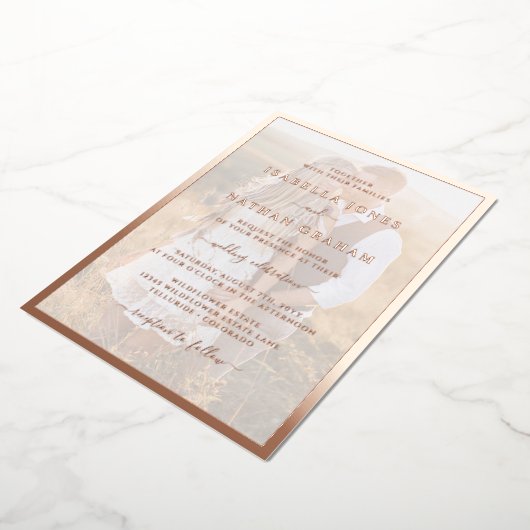 TOGETHER
WITH THEIR FAMILIES
ISABELLA JONES
and
NATHAN GRAHAM
REQUEST THE HONOR
OF YOUR PRESENCE AT THEIR
wedding celebration
SATURDAY, AUGUST 7TH, 20YY
AT FOUR O'CLOCK IN THE AFTERNOON
WILDFLOWER ESTATE
12345 WILDFLOWER ESTATE LANE
TELLURIDE • COLORADO
reception to follow